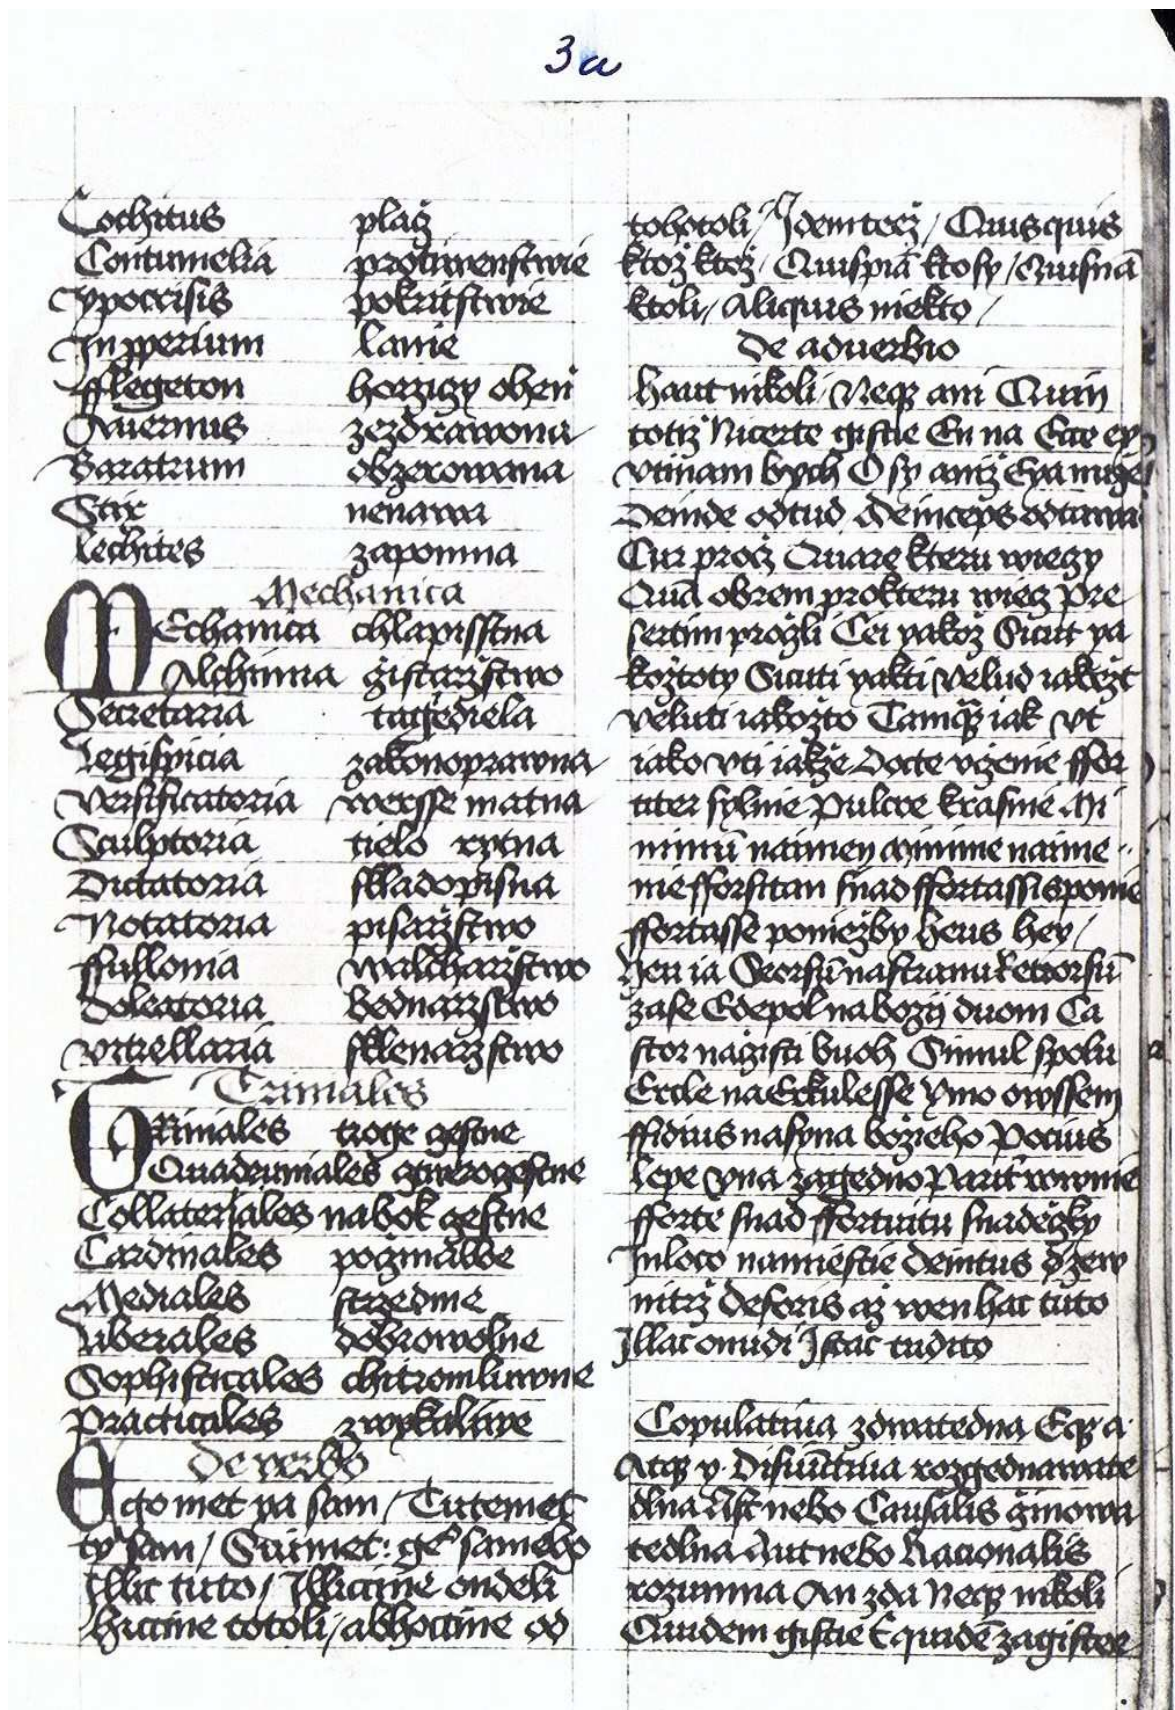 3a
Cochitus plaż
Contumelia protiwenstwie
Ypocrisis pokritstwie
Inpperium lanie
fflegeton horzuzy ohen
Auernus
Baratrum obzerowana
Stix nenawa
Lechites zapomna
Mechanica
MEchanica chlapisstna
Alchimia
Secretaria tagediela
Legispicia zakonoprawna
Versificatoria wersse matna
Sculptoria tielo rytna
Dictatoria skladopisna
Notatoria pisarzstwo
ffullonia walcharzstwo
Doleatoria bednarzstwo
Vitrellaria sklenarzstwo
Triuiales
TRiuiales troge gestne
Quadruuiales
Collaterales nabok gestne
Cardinales
Mediales strzedme
Liberales dobrowolne
Sophisticales chitromluwne
Practicales zwykaliwe
De verbo
Ego met ya sam / Tutemet
ty sam / Suimet: ge° sameho
Illic tuto / Illiccine ondeli
hiccine totoli / abhoccine od
tohotoli / Idem tocż / Quisquis
ktoż ktoż / Quispiā ktosy / Quisnā
ktoli / Aliquis niekto /
De aduerbio
haut nikoli / Neqz ani Quin
totiż Nicerte gistie En na Ecce ey
vtinam bych O sy
Deinde odtud / deinceps odtawa
Cur procż Quare kteru wieczy
Quā obrem prokteru wiecz Pre
sertim
kożtoty Sicuti yakti Velud
Veluti iakożto Tamqz iak vt
iako vti iakże Docte vczenie ffor
titer sylnie Pulcre krasnie Mi
nimū naimen Minime naime
nie fforsitan snad ffortassis ponie
ffortasse ponieżby heus hey /
heu ia Seorsū nastranu Retrorsū
zase Edepol na boży duom Ca
stor nagisti buoh Simul spolu
Ercle na Erkulesse Ymo owssem
ffidius nasyna bożieho Pocius
lepe Vna zagedno Parit rownie
fforte snad ffortuitu
Inloco namiestie Deintus
nitrż Deforis aż wen hac tuto
Illac onudi Istac tudito
Copulatiua
Atqz y Disiūctiua rozgednawate
dlna
tedlna Aut nebo Racionalis
rozumna An zda Neqz nikoli
Quidem gistie Equidē zagistee